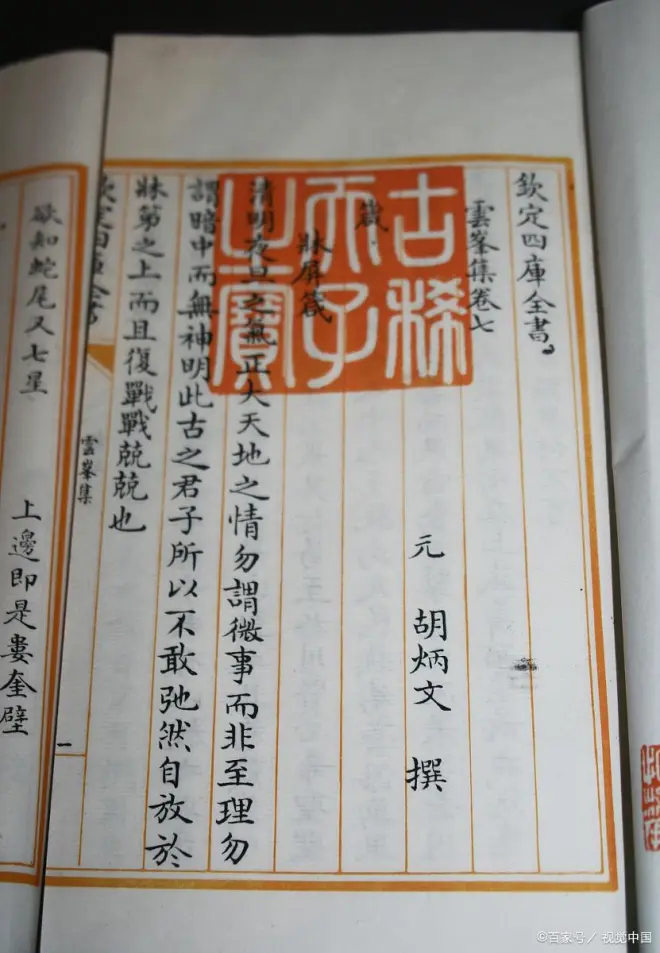 欽定四庫全書
雲峯集卷七
元 胡炳文 撰
箴
牀屏箴
清明夜旦之氣正大天地之情勿謂微事而非至理勿
謂暗中而無神明此古之君子所以不敢弛然自放於
牀笫之上而且復戰戰兢兢也
古稀
天子
之寳
欽定四庫全書
雲峯集
一
欲知蛇尾又七星 上邊即是婁奎壁
©百家号/视觉中国